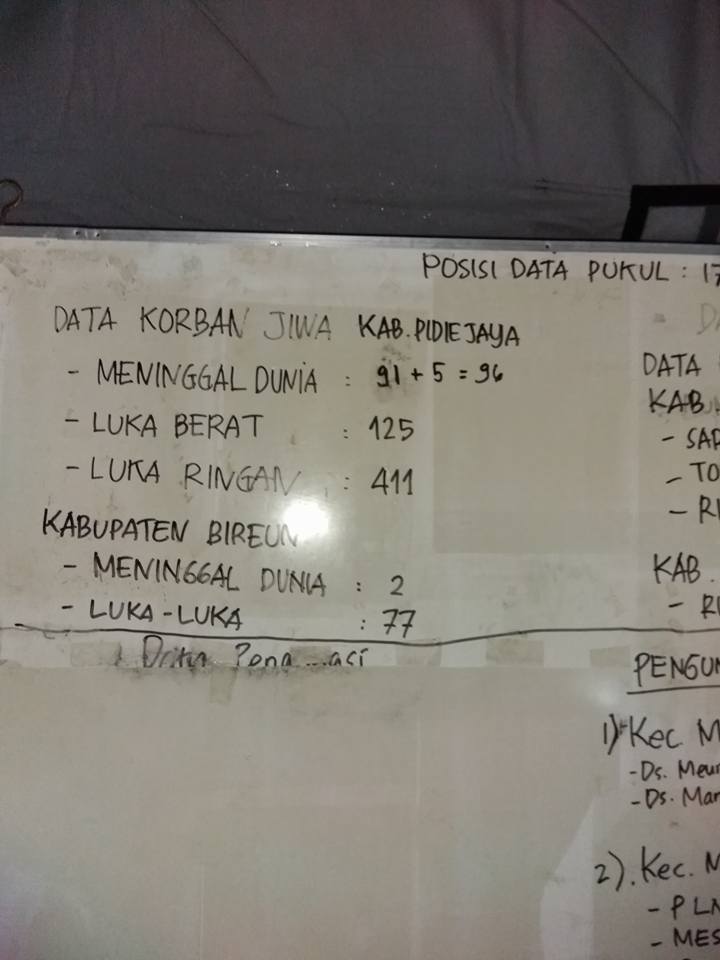 POSISI DATA PUKUL : 17
DATA KORBAN JIWA KAB. PIDIE JAYA
- MENINGGAL DUNIA : 91 + 5 = 96
- LUKA BERAT : 125
- LUKA RINGAN : 411
KABUPATEN BIREUN
- MENINGGAL DUNIA : 2
- LUKA-LUKA : 77
DATA
KAB
- SAR
- TO
- RU
KAB.
- RU
PENGUN
1) Kec. M
- Ds. Meur
- Ds. Man
2). Kec. M
- PLN
- MES